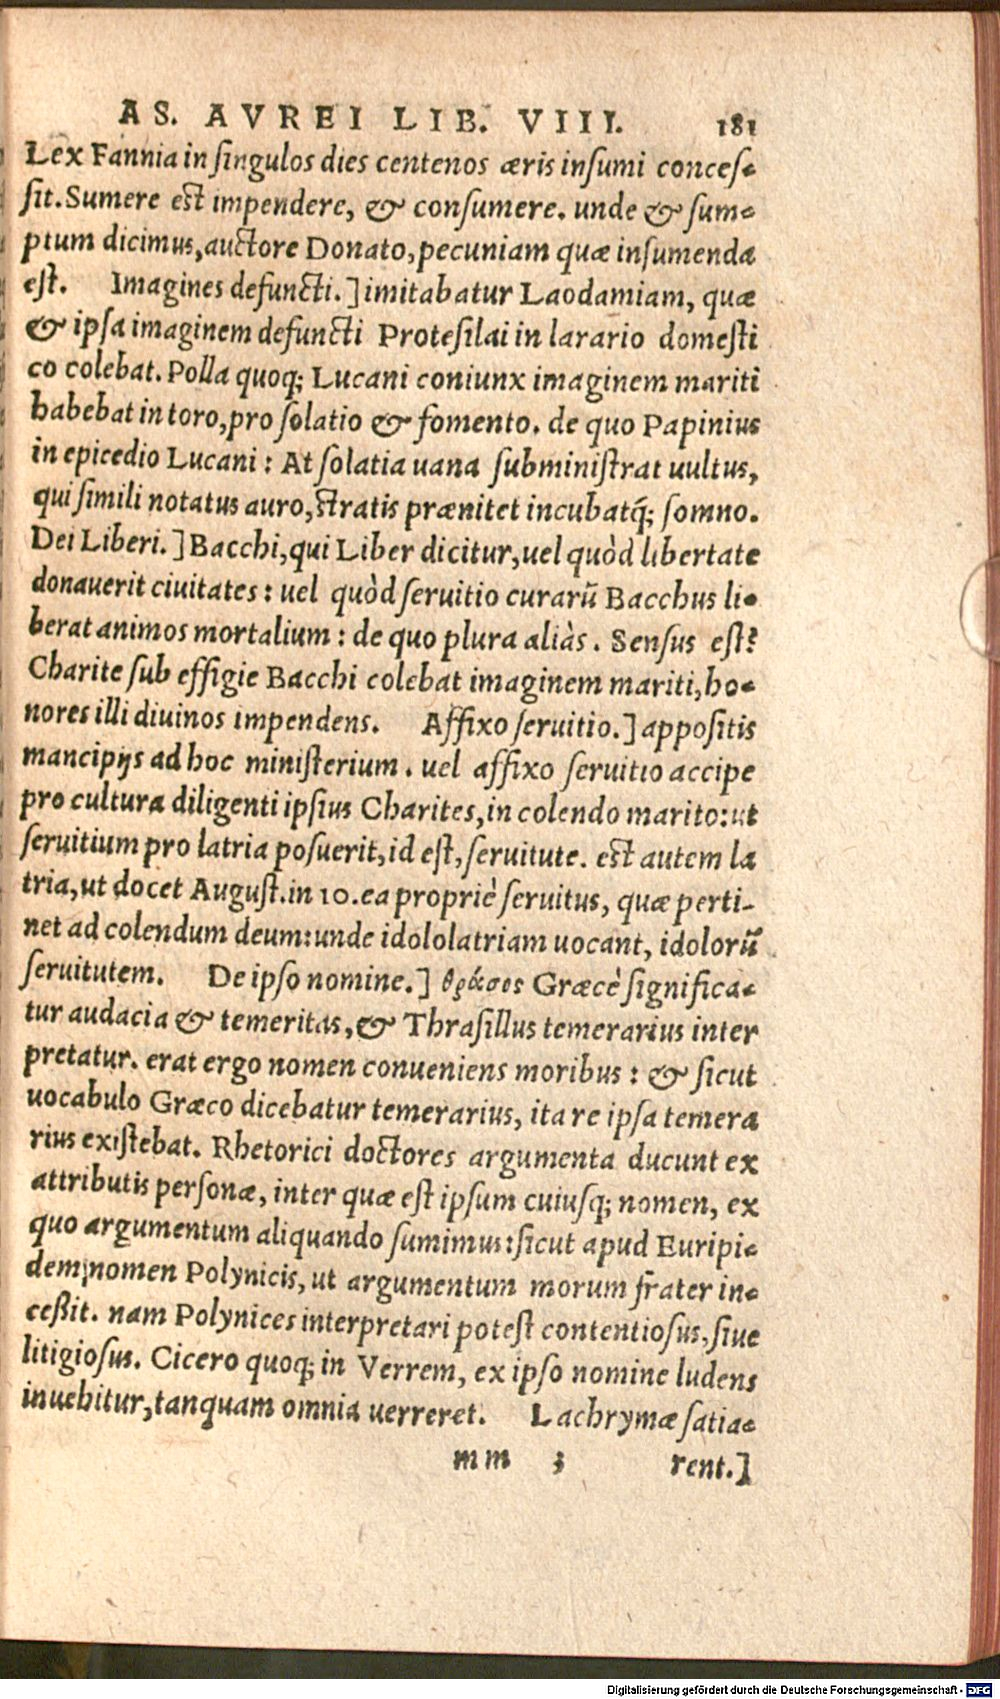 AS. AVREI LIB. VIII. 181
Lex Fannia in singulos dies centenos æris insumi conces-
sit. Sumere est impendere, & consumere. unde & sum-
ptum dicimus, auctore Donato, pecuniam quæ insumenda
est. Imagines defuncti. ] imitabatur Laodamiam, quæ
& ipsa imaginem defuncti Protesilai in larario domesti
co colebat. Polla quoq; Lucani coniunx imaginem mariti
habebat in toro, pro solatio & fomento. de quo Papinius
in epicedio Lucani : At solatia uana subministrat uultus,
qui simili notatus auro, stratis prænitet incubatq́; somno.
Dei Liberi. ] Bacchi, qui Liber dicitur, uel quòd libertate
donauerit ciuitates : uel quòd seruitio curarũ Bacchus li-
berat animos mortalium : de quo plura aliàs. Sensus est:
Charite sub effigie Bacchi colebat imaginem mariti, ho-
nores illi diuinos impendens. Affixo seruitio. ] appositis
mancipijs ad hoc ministerium. uel affixo seruitio accipe
pro cultura diligenti ipsius Charites, in colendo marito: ut
seruitium pro latria posuerit, id est, seruitute. est autem la
tria, ut docet August. in 10. ea propriè seruitus, quæ perti-
net ad colendum deum: unde idololatriam uocant, idolorũ
seruitutem. De ipso nomine. ] θράσος Græcè significa-
tur audacia & temeritas, & Thrasillus temerarius inter
pretatur. erat ergo nomen conueniens moribus : & sicut
uocabulo Græco dicebatur temerarius, ita re ipsa temera
rius existebat. Rhetorici doctores argumenta ducunt ex
attributis personæ, inter quæ est ipsum cuiusq; nomen, ex
quo argumentum aliquando sumimus: sicut apud Euripi-
dem nomen Polynicis, ut argumentum morum frater in-
ceßit. nam Polynices interpretari potest contentiosus, siue
litigiosus. Cicero quoq; in Verrem, ex ipso nomine ludens
inuehitur, tanquam omnia uerreret. Lachrymæ satia-
mm 3 rent. ]
Digitalisierung gefördert durch die Deutsche Forschungsgemeinschaft - DFG